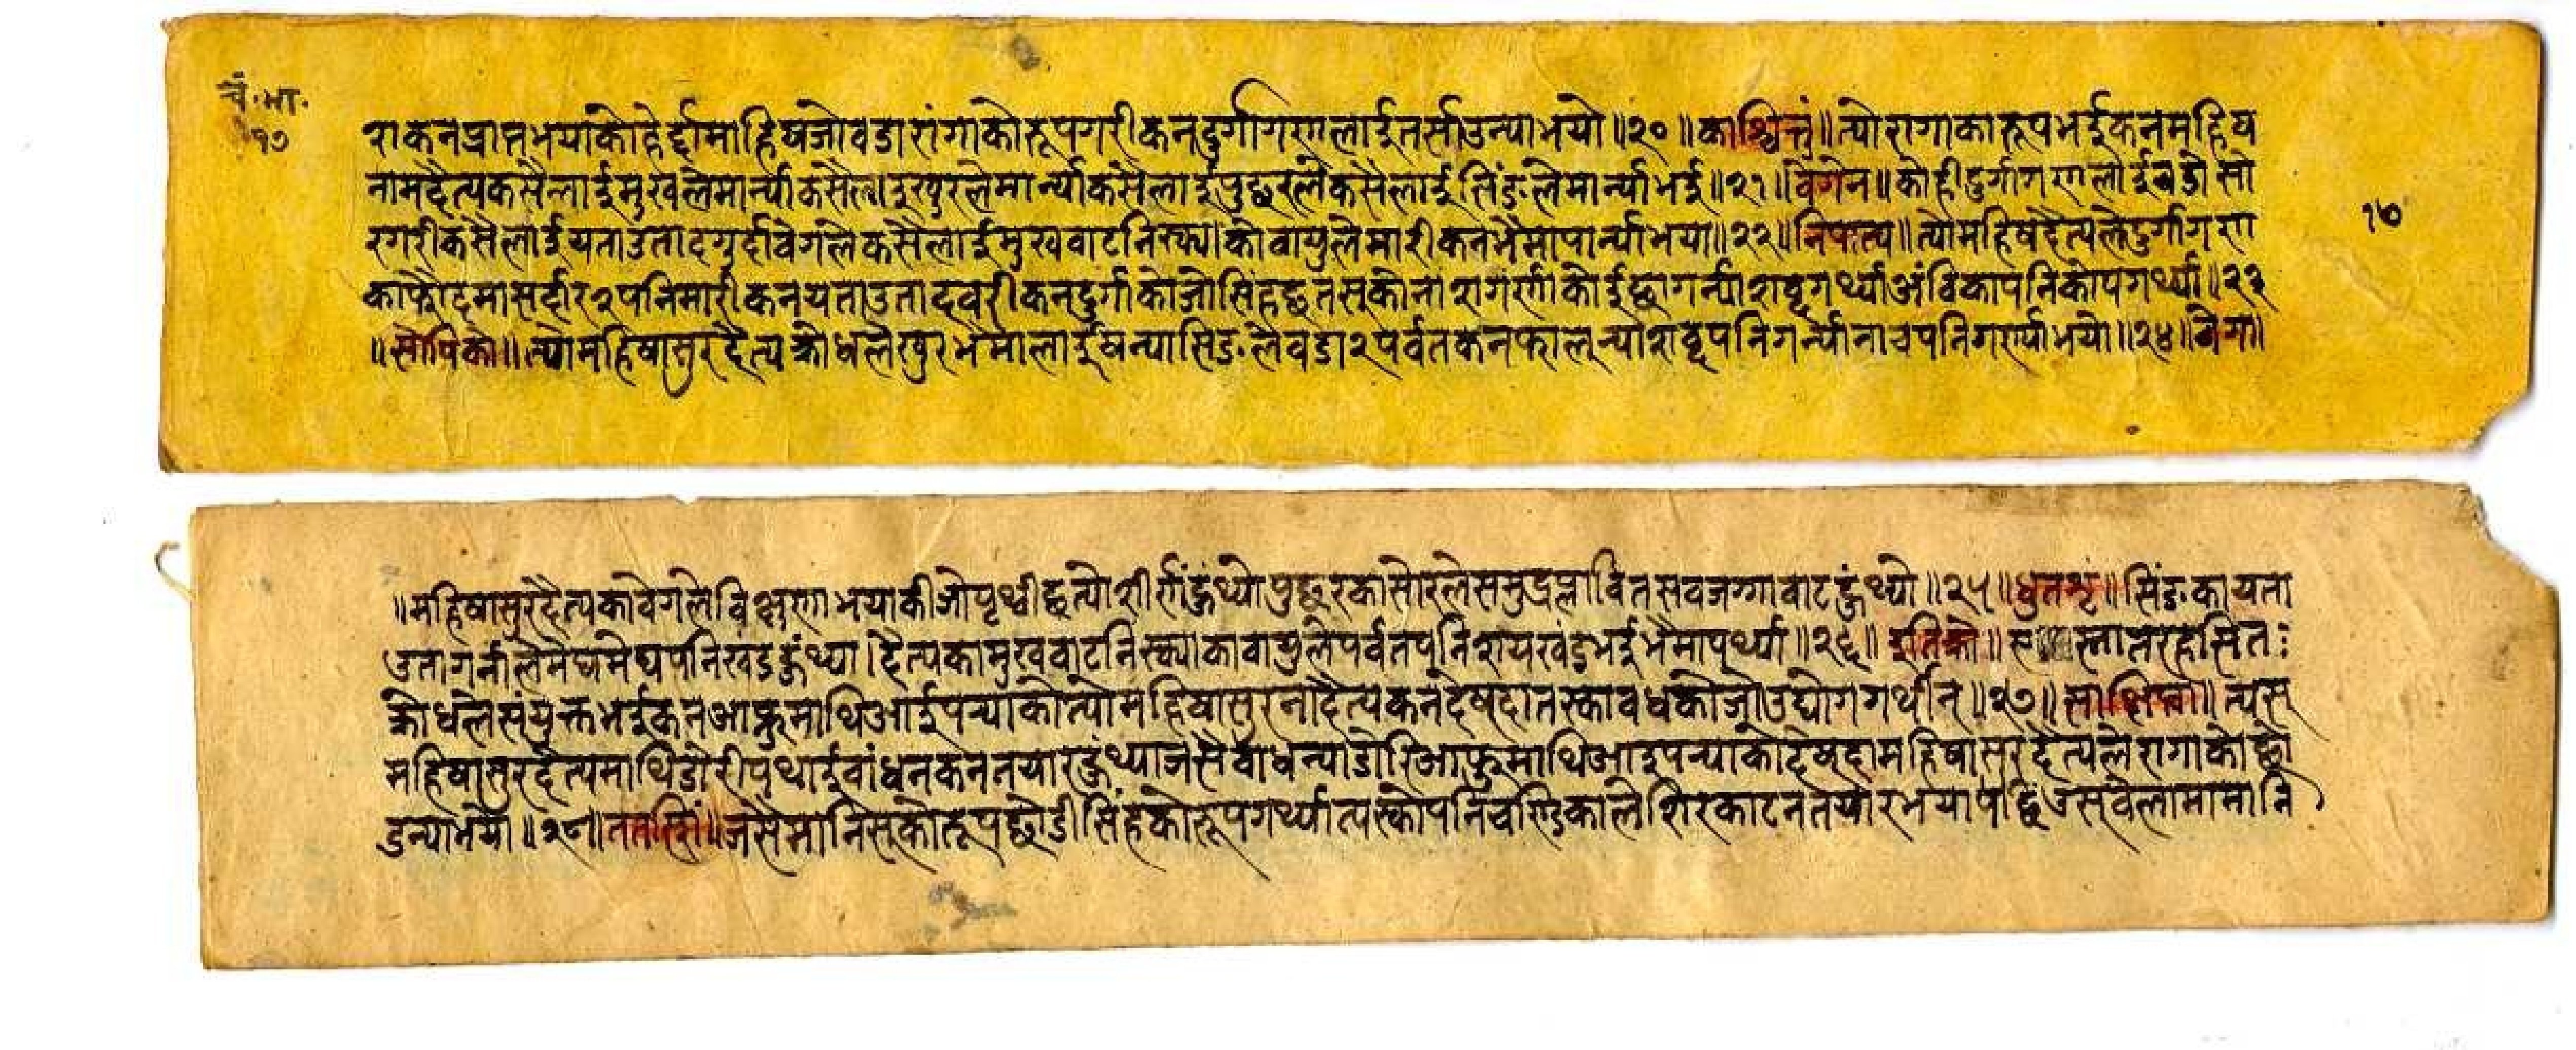 चं.भा.
१७
राकनप्राप्तभयाकोहैर्दामाहिषजोवडारांगाकोरूपगरीकनदुर्गागणलाईतर्साउन्याभयो॥२०॥कांश्चित्तुं॥त्योरागाकारूपभईकनमहिष
नामदैत्यकसैलाईमुखलेमार्न्याकसैलाइखुरलेमार्न्याकसैलाईपुछरलेकसैलाईसिंङलेमार्न्याभई॥२१॥वेगेन॥कोहीदुर्गागणलाईवडोसो
रगरीकसैलाईयताउतादगुर्दावेगलेकसैलाईमुखवाटनिस्क्याकोवायुलेमारीकनभैमापार्न्याभया॥२२॥निपात्य॥त्योमहिषदैत्यलेदुर्गागण
१७
काफौदमासर्दार२पनिमारीकनयताउतादवरीकनदुर्गाकोजोसिंहछतस्कोनाशगर्नाकोईछागर्न्याशवृगर्थ्याअंविकापनिकोपगर्थ्या॥२३
॥सोपिको॥त्योमहिषासुरदैत्यक्रोधलेखुरभैमालाईघन्यासिङलेवडा२पर्वतकनफाल्न्याशवृपनिगर्न्यानाचपनिगर्ण्याभयो॥२४॥वेग॥
॥महिषासुरदैत्यकावेगलेविक्षुणाभयाकीजोपृथ्वीछत्योशीर्णहुंथ्योपुछरकासोरलेसमुद्रप्लावितसवजग्गावाटहुंथ्यो॥२५॥धुतशृं॥सिंङकायता
उतागर्नालेमेघमेघपनिखंडहुंथ्या।दैत्यकामुखवाटनिस्क्याकावायुलेपर्वतपनिशयखंडभईभैमापर्थ्या॥२६॥इतिक्रो॥
क्रोधलेसंयुक्तभईकनआफुमाथिआईपन्याकोत्योमहिषासुरनादैत्यकनदेष्दातस्कावधकोजोउद्योगगर्थिन्॥२७॥साक्षिप्त्वा॥त्यस्
महिषासुरदैत्यमाथिडोरीपर्थाईवांधनकनतयारहुंथ्याजसैवांधन्याडोरिआफुमाथिआइपन्याकोदेष्दामहिषासुरदैत्यलेरागाकोछो
डन्याभयो॥२८॥ततःसिं॥जसैमानिस्कोरूपछोडीसिंहकोरूपगर्थ्यात्यस्कोपनिचण्डिकालेशिरकाटनतयारभयापछिउस्वेलामामानि